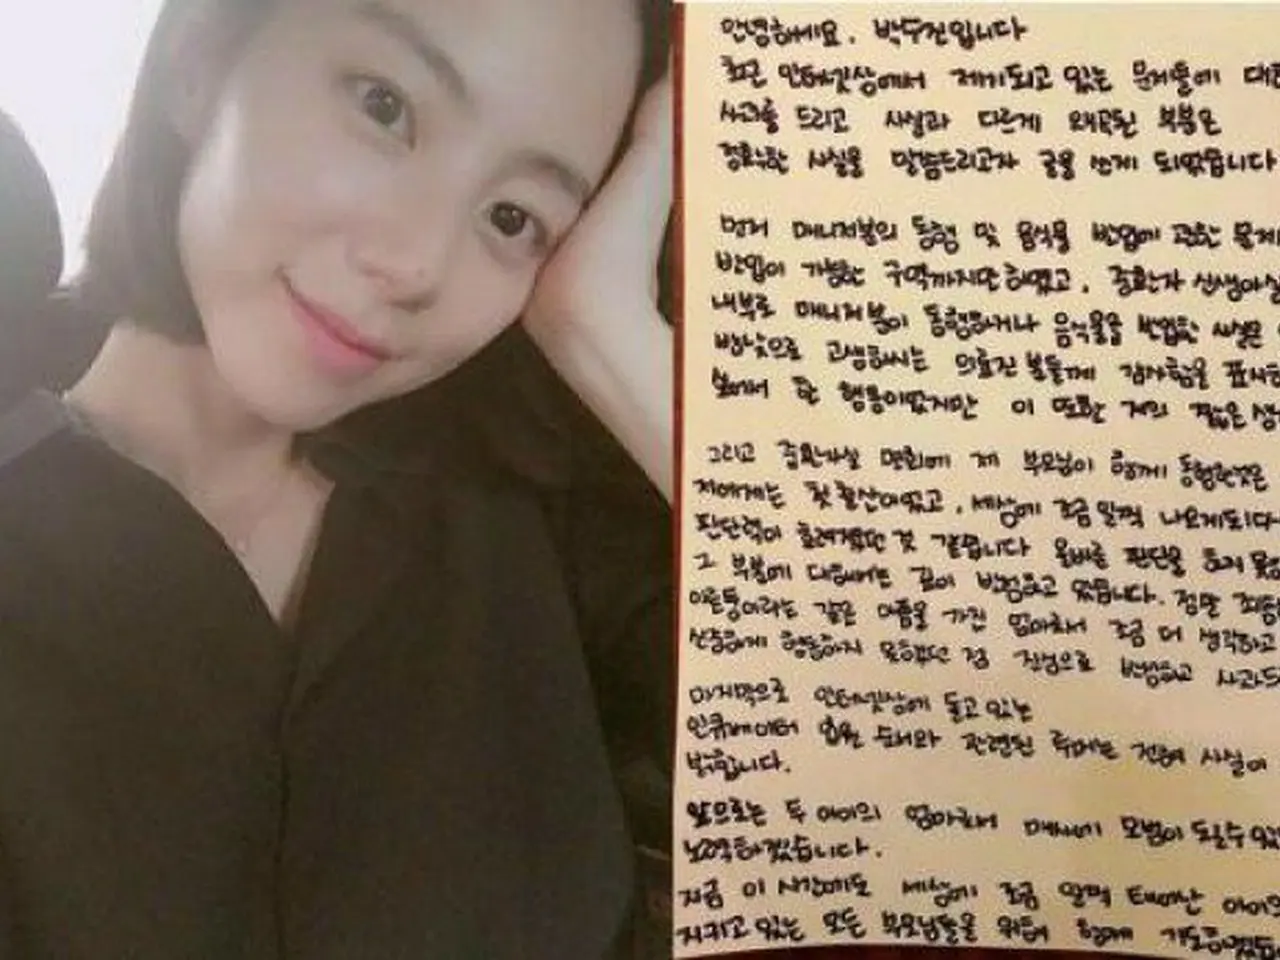 안녕하세요. 박수진입니다
최근 인터넷상에서 제기되고 있는 문제들에 대
사과를 드리고 사실과 다르게 왜곡된 부분은
정확한 사실을 말씀드리고자 글을 쓰게 되었습니다
먼저 매니저분의 동행 및 음식물 반입에 관한 문제
반입이 가능한 구역까지만 하였고, 중환자 신생아실
내부로 매니저분이 동행하거나 음식물을 반입한 사실은
밤낮으로 고생하시는 의료진 분들께 감사함을 표시
에서 한 행동이었지만 이 또한 저의 짧은 생
그리고 중환자실 면회에 제 부모님이 함께 동행한것은
저에게는 첫 출산이었고, 세상에 조금 일찍 나오게되다
판단력이 흐려졌던 것 같습니다 올바른 판단을 하지 못
그 부분에 대해서는 깊이 반성하고 있습니다. 정말
이른둥이라는 같은 아픔을 가진 엄마로서 조금 더 생각하고
신중하게 행동하지 못했던 점 진심으로 반성하고 사과드
마지막으로 인터넷상에 돌고있는
인큐베이터 입원 순서와 관련된 루머는 전혀 사실이
밝힙니다.
앞으로는 두 아이의 엄마로서 매사에 모범이 될수있
노력하겠습니다.
지금 이 시간에도 세상에 조금 일찍 태어난 아이
지키고있는 모든 부모님들을 위해 함께 기도하겠습